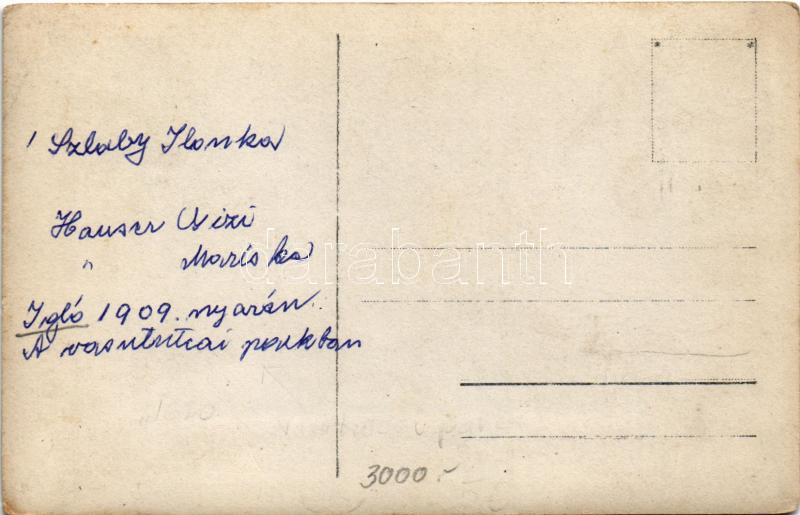 / Szlaby Ilonka
Hauser Vizi
" Mariska
Igló 1909. nyarán.
A vasututcai parkban
3000.-
darabanth